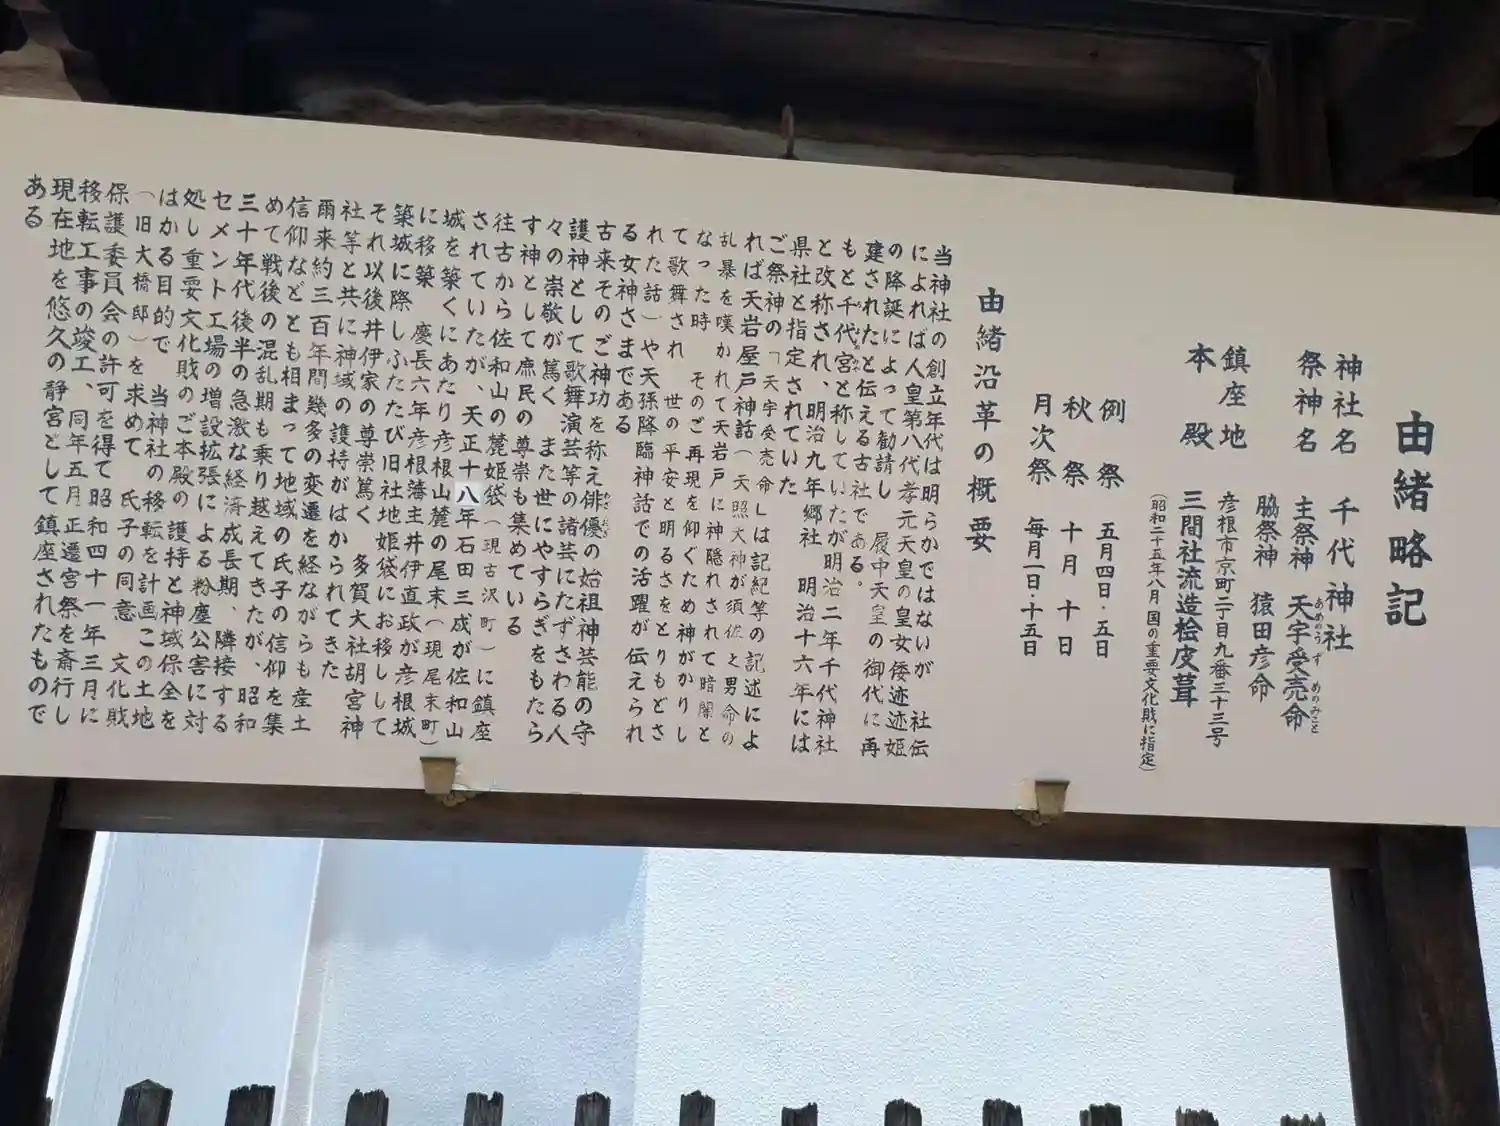 由緒略記
神社名　千代神社
祭神名　主祭神　天宇受売命
あめのうずめのみこと
脇祭神　猿田彦命
鎮座地　彦根市京町二丁目九番三十三号
本殿　三間社流造桧皮葺
（昭和二十五年八月 国の重要文化財に指定）
例祭　五月四日・五日
秋祭　十月十日
月次祭　毎月一日・十五日
由緒沿革の概要
当神社の創立年代は明らかではないが　社伝
によれば人皇第八代孝元天皇の皇女倭迹迹姫
の降誕によって勧請し　履中天皇の御代に再
建されたと伝える古社である。
もと千代宮と称していたが明治二年千代神社
と改称され、明治九年郷社　明治十六年には
県社と指定されていた
ご祭神の「天宇受売命」は記紀等の記述によ
れば天岩屋戸神話（天照大神が須佐之男命の
乱暴を嘆かれて天岩戸に神隠れされて暗闇と
なった時　そのご再現を仰ぐため神がかりし
て歌舞され　世の平安と明るさをとりもどさ
れた話）や天孫降臨神話での活躍が伝えられ
る女神さまである
古来そのご神功を称え俳優の始祖神芸能の守
護神として歌舞演芸等の諸芸にたずさわる人
々の崇敬が篤く　また世にやすらぎをもたら
す神として庶民の尊崇も集めている
往古から佐和山の麓姫袋（現古沢町）に鎮座
されていたが、天正十八年石田三成が佐和山
城を築くにあたり彦根山麓の尾末（現尾末町）
に移築　慶長六年彦根藩主井伊直政が彦根城
築城に際しふたたび旧社地姫袋にお移しして
それ以後井伊家の尊崇篤く　多賀大社胡宮神
社等と共に神域の護持がはかられてきた
爾来約三百年間幾多の変遷を経ながらも産土
信仰などとも相まって地域の氏子の信仰を集
めて戦後の混乱期も乗り越えてきたが、昭和
三十年代後半の急激な経済成長期、隣接する
セメント工場の増設拡張による粉塵公害に対
処し重要文化財のご本殿の護持と神域保全を
はかる目的で　当神社の移転を計画この土地
（旧大橋邸）を求めて　氏子の同意　文化財
保護委員会の許可を得て昭和四十一年三月に
移転工事の竣工、同年五月正遷宮祭を斎行し
現在地を悠久の静宮として鎮座されたもので
ある